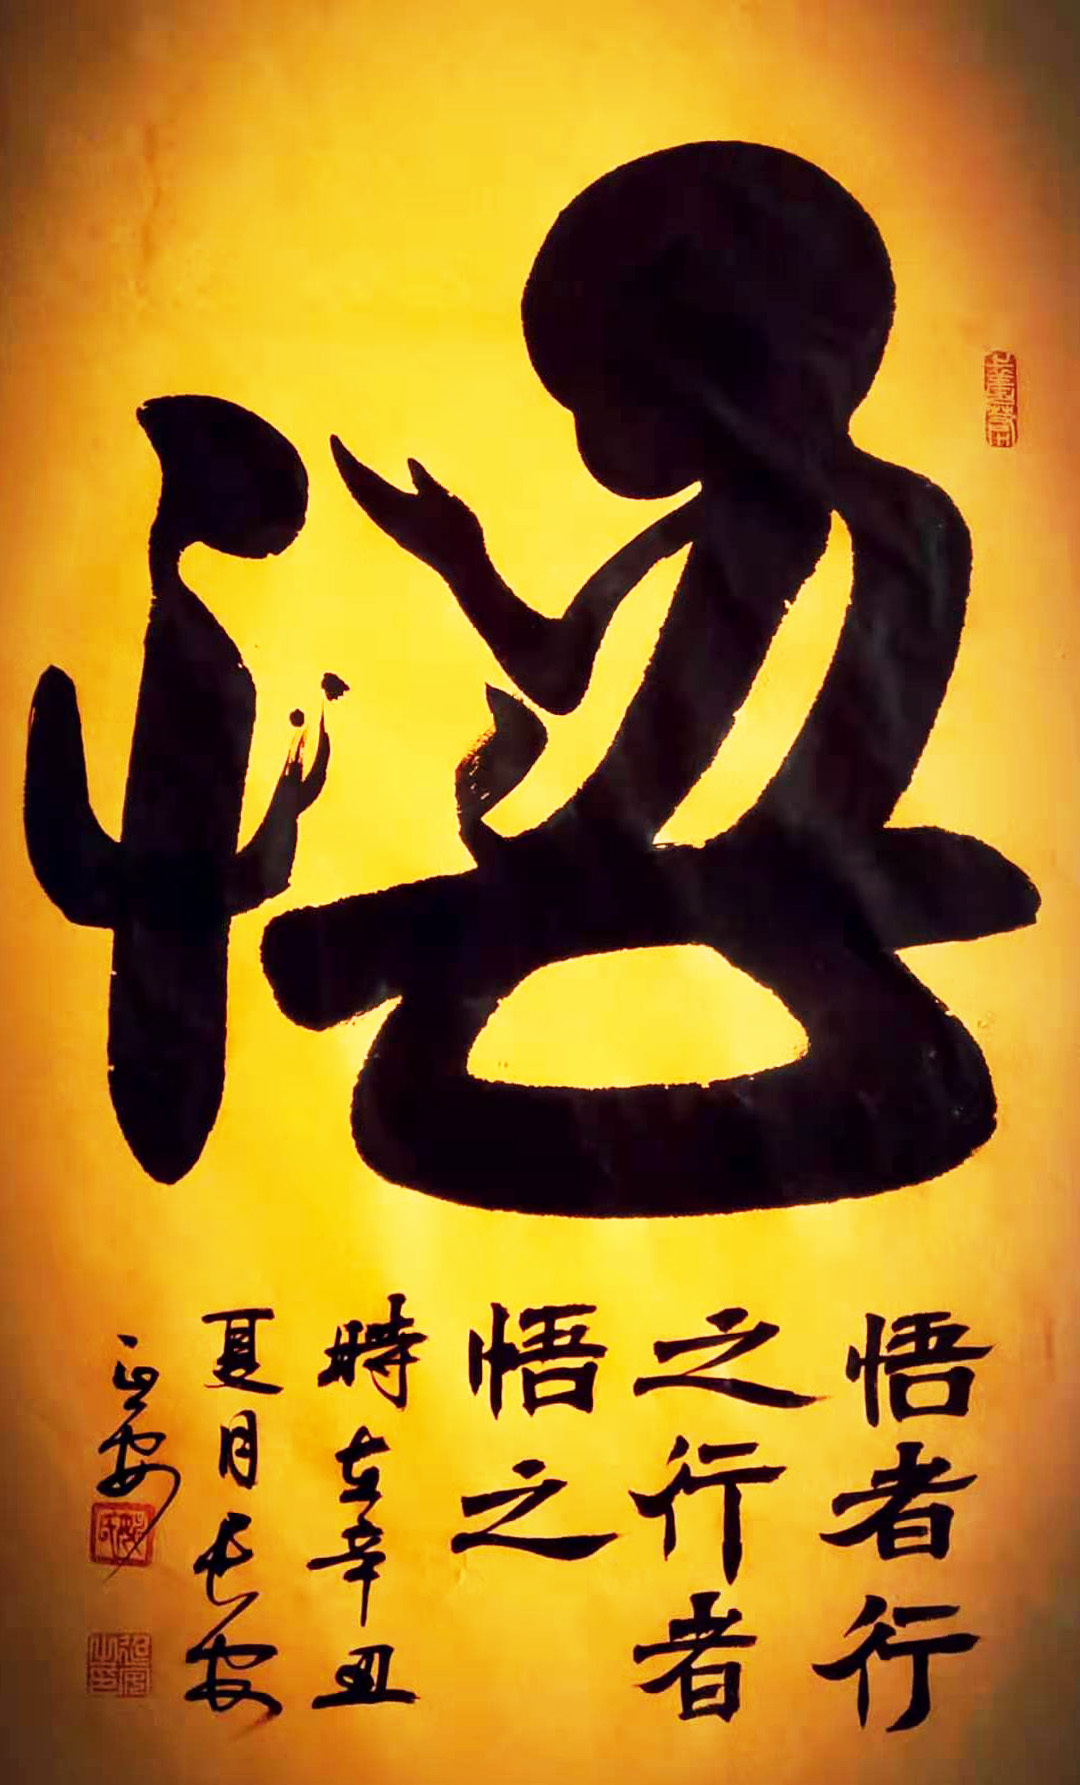 悟
悟者行
之行者
悟之
時在辛丑
夏月長安